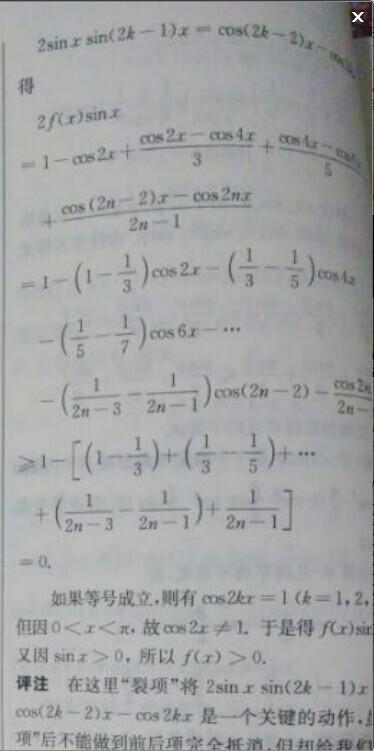 2sin x sin(2k−1)x = cos(2k−2)x−
得
2f(x)sin x
= 1−cos 2x + (cos 2x−cos 4x)/3 + (cos 4x−cos 6x)/5
+ (cos (2n−2)x−cos 2nx)/(2n−1)
= 1−(1−1/3)cos 2x−(1/3−1/5)cos 4x
−(1/5−1/7)cos 6x−⋯
−(1/(2n−3)−1/(2n−1))cos(2n−2)−cos 2n/(2n−
⩾1−[(1−1/3)+(1/3−1/5)+⋯
+(1/(2n−3)−1/(2n−1))+1/(2n−1)]
= 0.
如果等号成立,则有 cos2kx = 1 (k = 1, 2,
但因 0<x<π, 故 cos 2x ≠ 1. 于是得 f(x)sin
又因 sin x > 0, 所以 f(x) > 0.
评注 在这里“裂项”将 2sin x sin(2k−1)x
cos(2k−2)x−cos 2kx 是一个关键的动作,
项”后不能做到前后项完全抵消,但却给我们